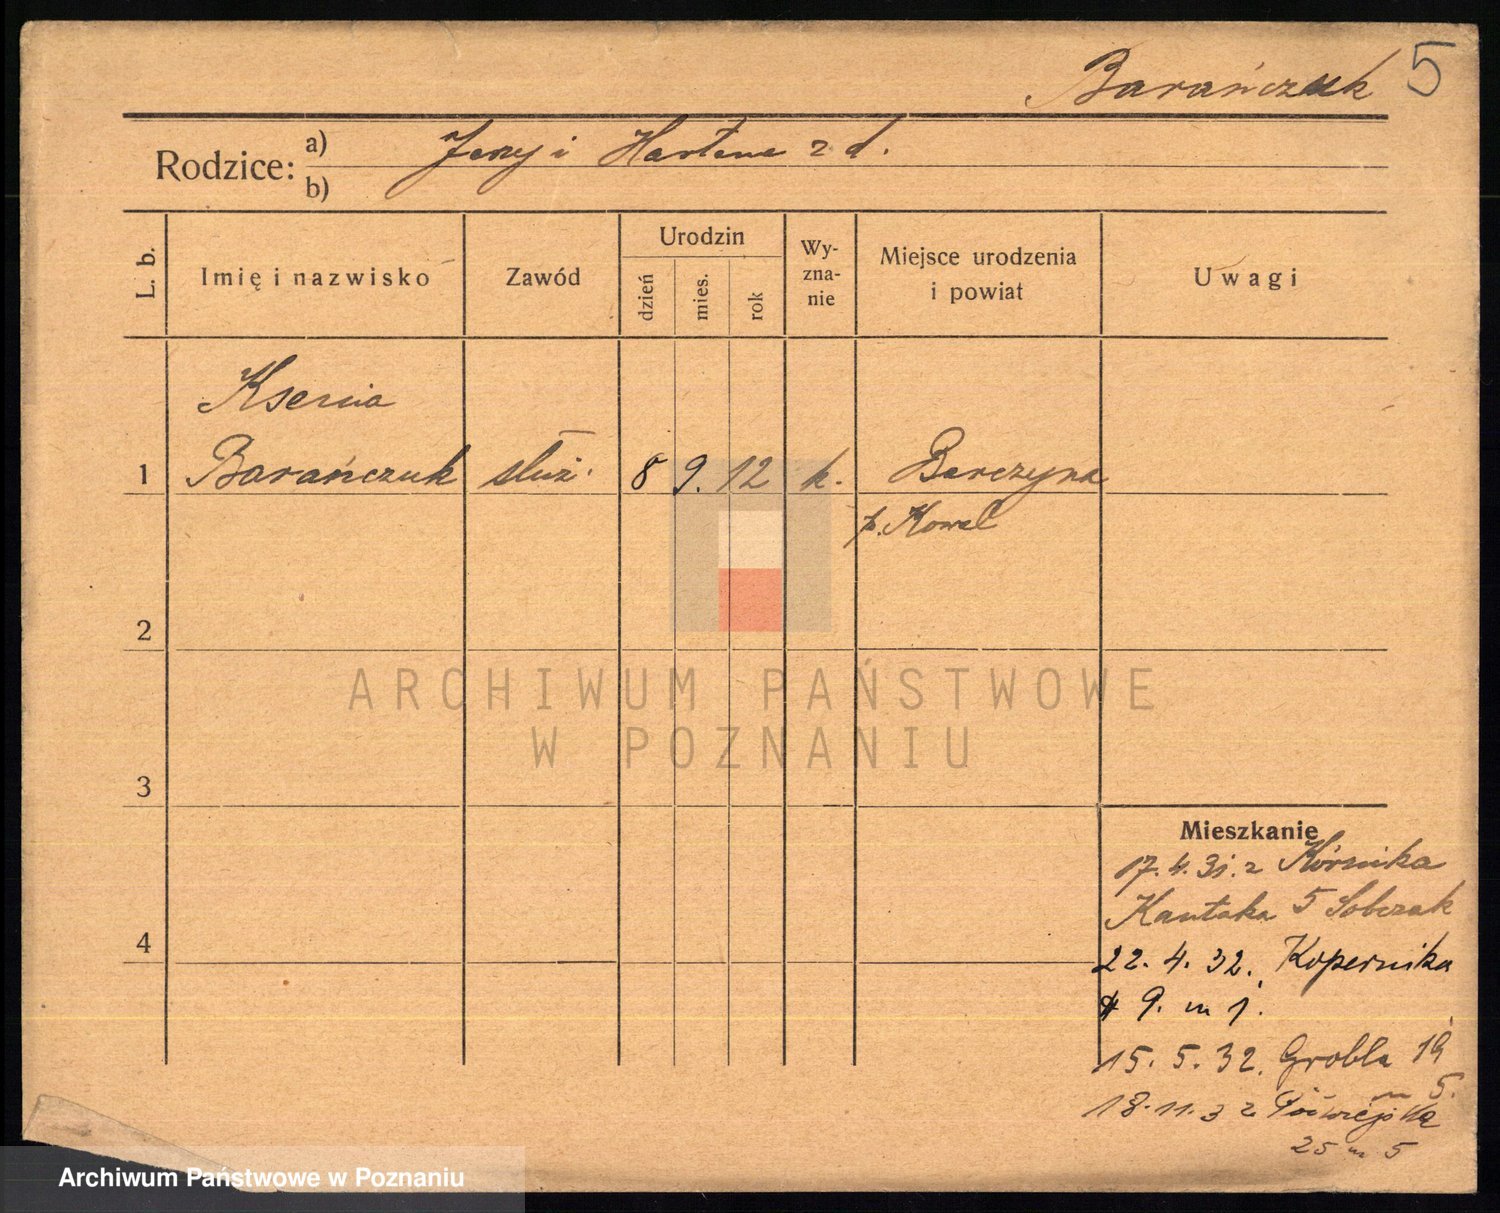 Barańczuk 5
Rodzice: a) Jerzy i Hartena z d.
b)
L. b. Imię i nazwisko Zawód Urodzin dzień mies. rok Wy-zna-nie Miejsce urodzenia i powiat Uwagi
Ksenia
1 Barańczuk służ. 8 9. 12 k. Barczyna
p. Kowel
2
ARCHIWUM PAŃSTWOWE
W POZNANIU
3
Mieszkanie
17. 4. 31. z Kórnika
Kantaka 5 Sobczak
4
22. 4. 32. Kopernika
9. m 1.
15. 5. 32. Grobla 19
m 5.
18. 11. 32 Półwiejska
25 m 5
Archiwum Państwowe w Poznaniu